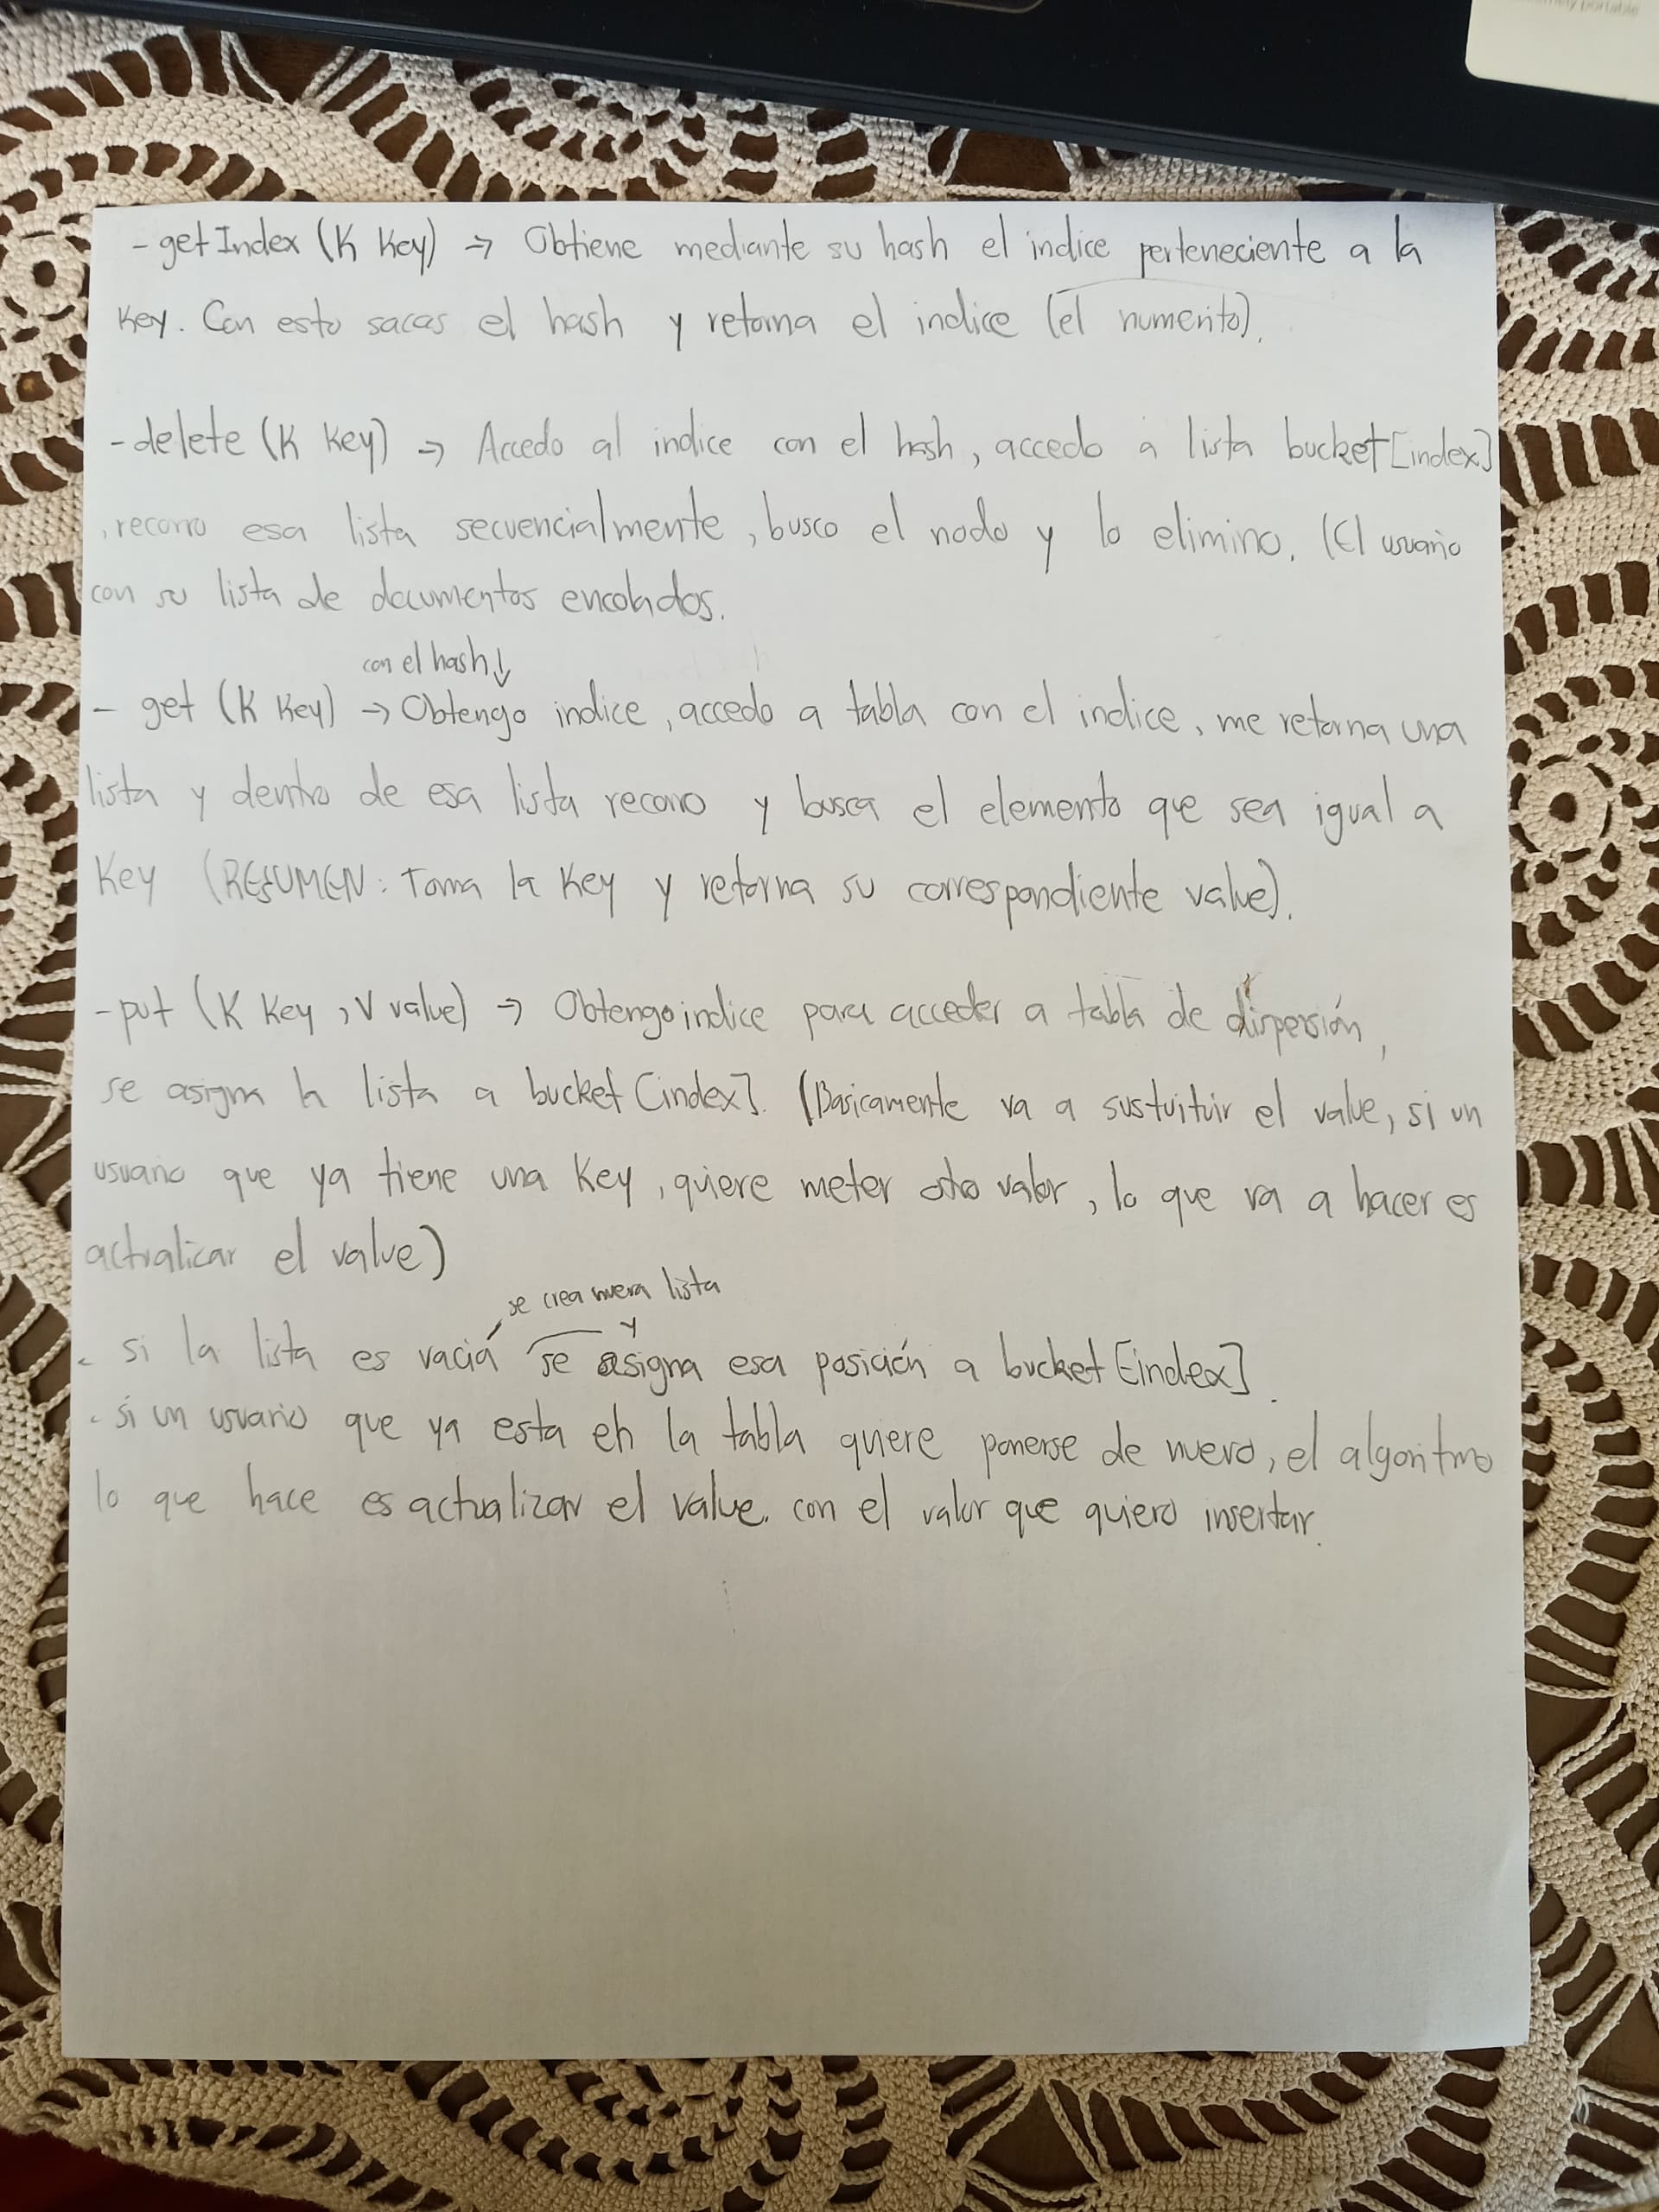 - getIndex (K Key) → Obtiene mediante su hash el indice perteneciente a la
Key. Con esto sacas el hash y retorna el indice (el numerito).
- delete (K Key) → Accedo al indice con el hash, accedo a lista bucket[index]
, recorro esa lista secuencialmente, busco el nodo y lo elimino. (El usuario
con su lista de documentos encolados.
con el hash ↓
- get (K Key) → Obtengo indice, accedo a tabla con el indice, me retorna una
lista y dentro de esa lista recorro y busca el elemento que sea igual a
Key (RESUMEN: Toma la Key y retorna su correspondiente value).
- put (K Key, V value) → Obtengo indice para acceder a tabla de dispersión,
se asigna la lista a bucket [index]. (Basicamente va a sustuituir el value, si un
usuario que ya tiene una Key, quiere meter otro valor, lo que va a hacer es
actualizar el value)
se crea nueva lista
y
- si la lista es vaciá se asigna esa posición a bucket [index].
- si un usuario que ya esta en la tabla quiere ponerse de nuevo, el algoritmo
lo que hace es actualizar el value. con el valor que quiero insertar.